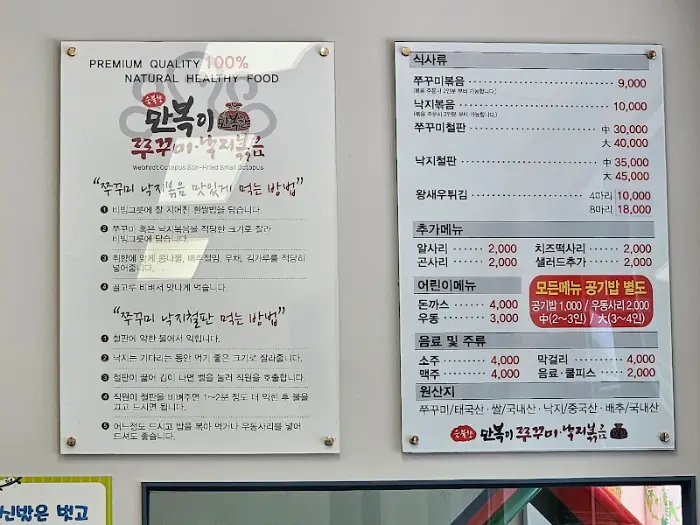 PREMIUM QUALITY 100%
NATURAL HEALTHY FOOD
숯불향
만복이
쭈꾸미·낙지볶음
Webfoot Octopus Stir-Fried Small Octopus
"쭈꾸미 낙지볶음 맛있게 먹는 방법"
❶ 비빔그릇에 잘 지어진 흰쌀밥을 담습니다.
❷ 쭈꾸미 혹은 낙지볶음을 적당한 크기로 잘라
비빔그릇에 담습니다.
❸ 취향에 맞게 콩나물, 배추절임, 무채, 김가루를 적당히
넣어줍니다.
❹ 골고루 비벼서 맛나게 먹습니다.
"쭈꾸미 낙지철판 먹는 방법"
❶ 철판에 약한 불에서 익힙니다.
❷ 낙지는 기다리는 동안 먹기 좋은 크기로 잘라줍니다.
❸ 철판이 끓어 김이 나면 벨을 눌러 직원을 호출합니다.
❹ 직원이 철판을 비벼주면 1~2분 정도 더 익힌 후 불을
끄고 드시면 됩니다.
❺ 어느정도 드시고 밥을 볶아 먹거나 우동사리를 넣어
드셔도 좋습니다.
식사류
쭈꾸미볶음 9,000
(볶음 주문시 2인분 부터 가능합니다.)
낙지볶음 10,000
(볶음 주문시 2인분 부터 가능합니다.)
쭈꾸미철판 中 30,000
大 40,000
낙지철판 中 35,000
大 45,000
왕새우튀김 4마리 10,000
8마리 18,000
추가메뉴
알사리 2,000 치즈떡사리 2,000
곤사리 2,000 샐러드추가 2,000
어린이메뉴
돈까스 4,000
우동 3,000
모든메뉴 공기밥 별도
공기밥 1,000 / 우동사리 2,000
中(2~3인) / 大(3~4인)
음료 및 주류
소주 4,000 막걸리 4,000
맥주 4,000 음료·쿨피스 2,000
원산지
쭈꾸미/태국산·쌀/국내산·낙지/중국산·배추/국내산
숯불향 만복이 쭈꾸미·낙지볶음
신발은 벗고